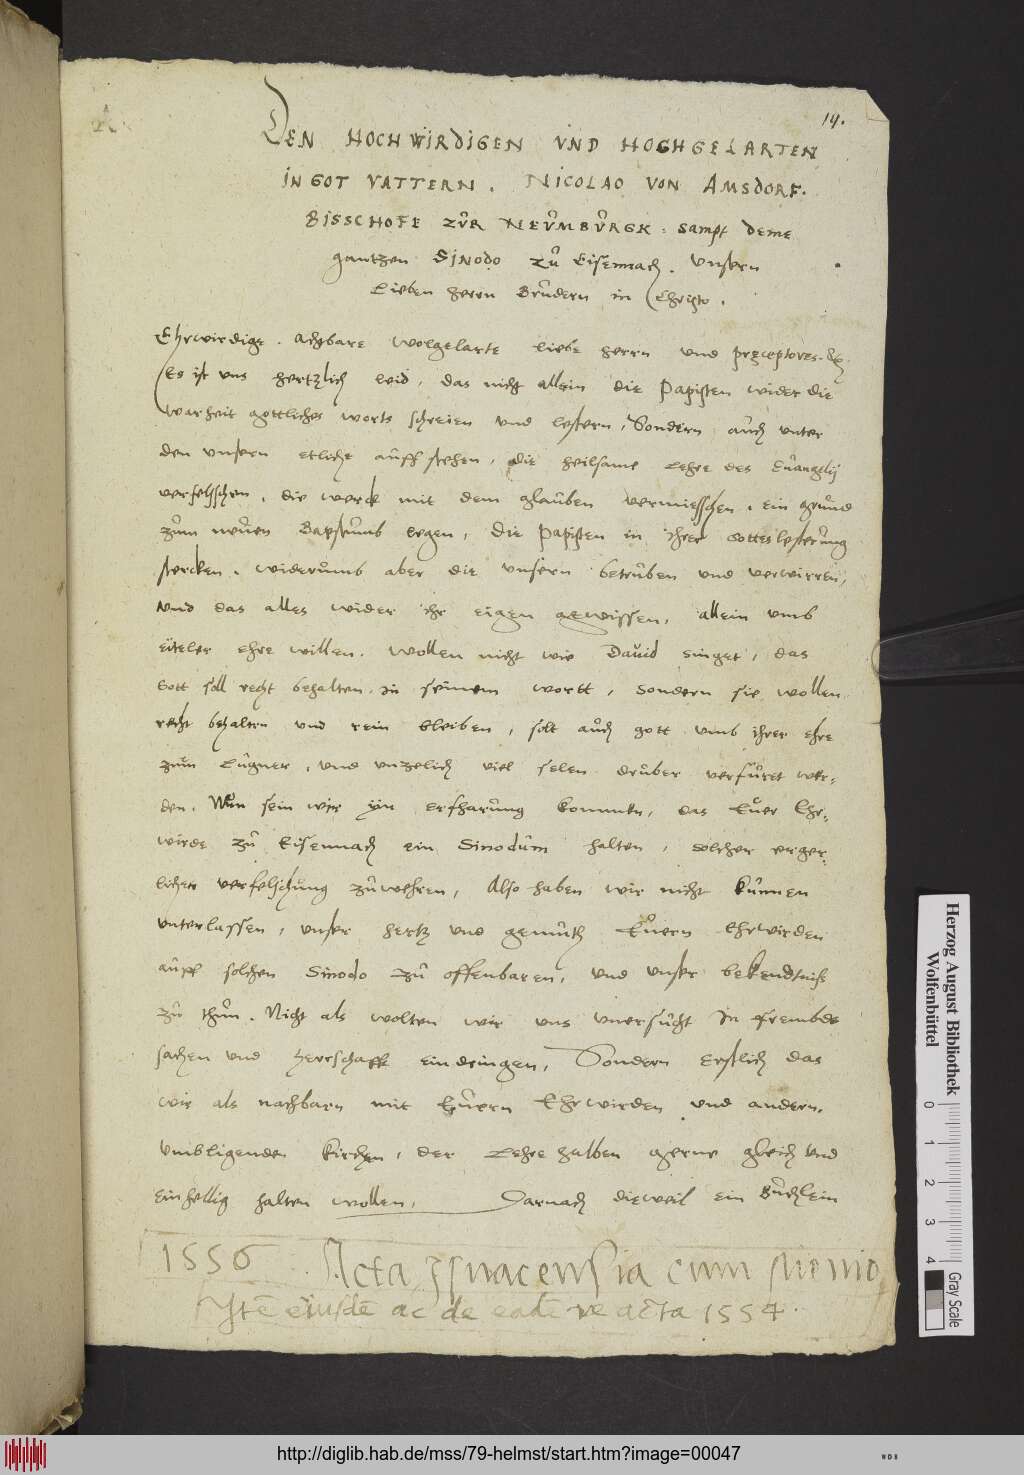 14.
DEN HOCHWIRDIGEN VND HOCHGELARTEN
IN GOT VATTERN. NICOLAO VON AMSDORF.
BISSCHOFE ZŮR NEŮMBŮRGK: sampt deme
gantzen SINODO zů Eisennach. Unsern
Lieben herrn Brůdern in Christo.
Ehrwirdige. Achbare wolgelarte liebe herrn und præceptores.
Es ist uns hertzlich leid, das nicht allein die Papisten wider die
warheit gottliches worts schreien und lestern, Sondern aůch unter
den unsern etliche aůff stehen, die heilsame Lehre des Eůangelij
verfelschen, die werck mit dem glaůben vermisschen, ein grůnd
zům neůen Bapstůmb legen, Die Papisten in ihrer Gottes lesterůng
stercken, widerůmb aber die unsern betrůben und verwirren,
Und das alles wider ihr eigen gewissen, allein umb
eiteler ehre willen. Wollen nicht wie David singet, das
Gott soll recht behalten in seinem wortt, sondern sie wollen
recht behalten und rein bleiben, solt aůch gott umb ihrer ehre
zům Lůgner, und unzelich viel selen drůber verfůret wer-
den. Nůn sein wir yn erfharůng kommen, das Eůer Ehr-
wirde zů Eisennach ein Sinodům halten, solcher erger-
lichen verfelschůng zů wehren, Also haben wir nicht kůnnen
unterlassen, unser hertz und gemůth Eůern Ehrwirden
aůff solchen Sinodo zů offenbaren, und unser bekendtnis
zů thůn. Nicht als wolten wir uns unersůcht in frembde
sachen und herrschafft eindringen, Sondern erstlich das
wir als nachbarn mit Eůern Ehrwirden und andern,
umbligenden kirchen, der Lehre halben gerne gleich und
einhellig halten wollen, Darnach dieweil ein Bůchlein
1556 Acta Isnacensia cum
Itē eiusdē ac de eadē re acta 1554.
Herzog August Bibliothek
Wolfenbüttel
0 1 2 3 4
Gray Scale
http://diglib.hab.de/mss/79-helmst/start.htm?image=00047
WDB